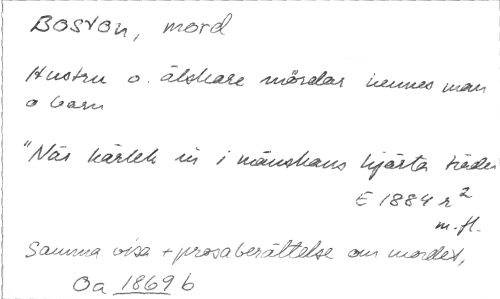 BOSTON, mord
Hustru o. älskare mördar hennes man
o barn
"När kärlek in i mänskans hjärta träder
E 1884 r²
m.fl.
Samma visa + prosaberättelse om mordet,
Oa 1869 b